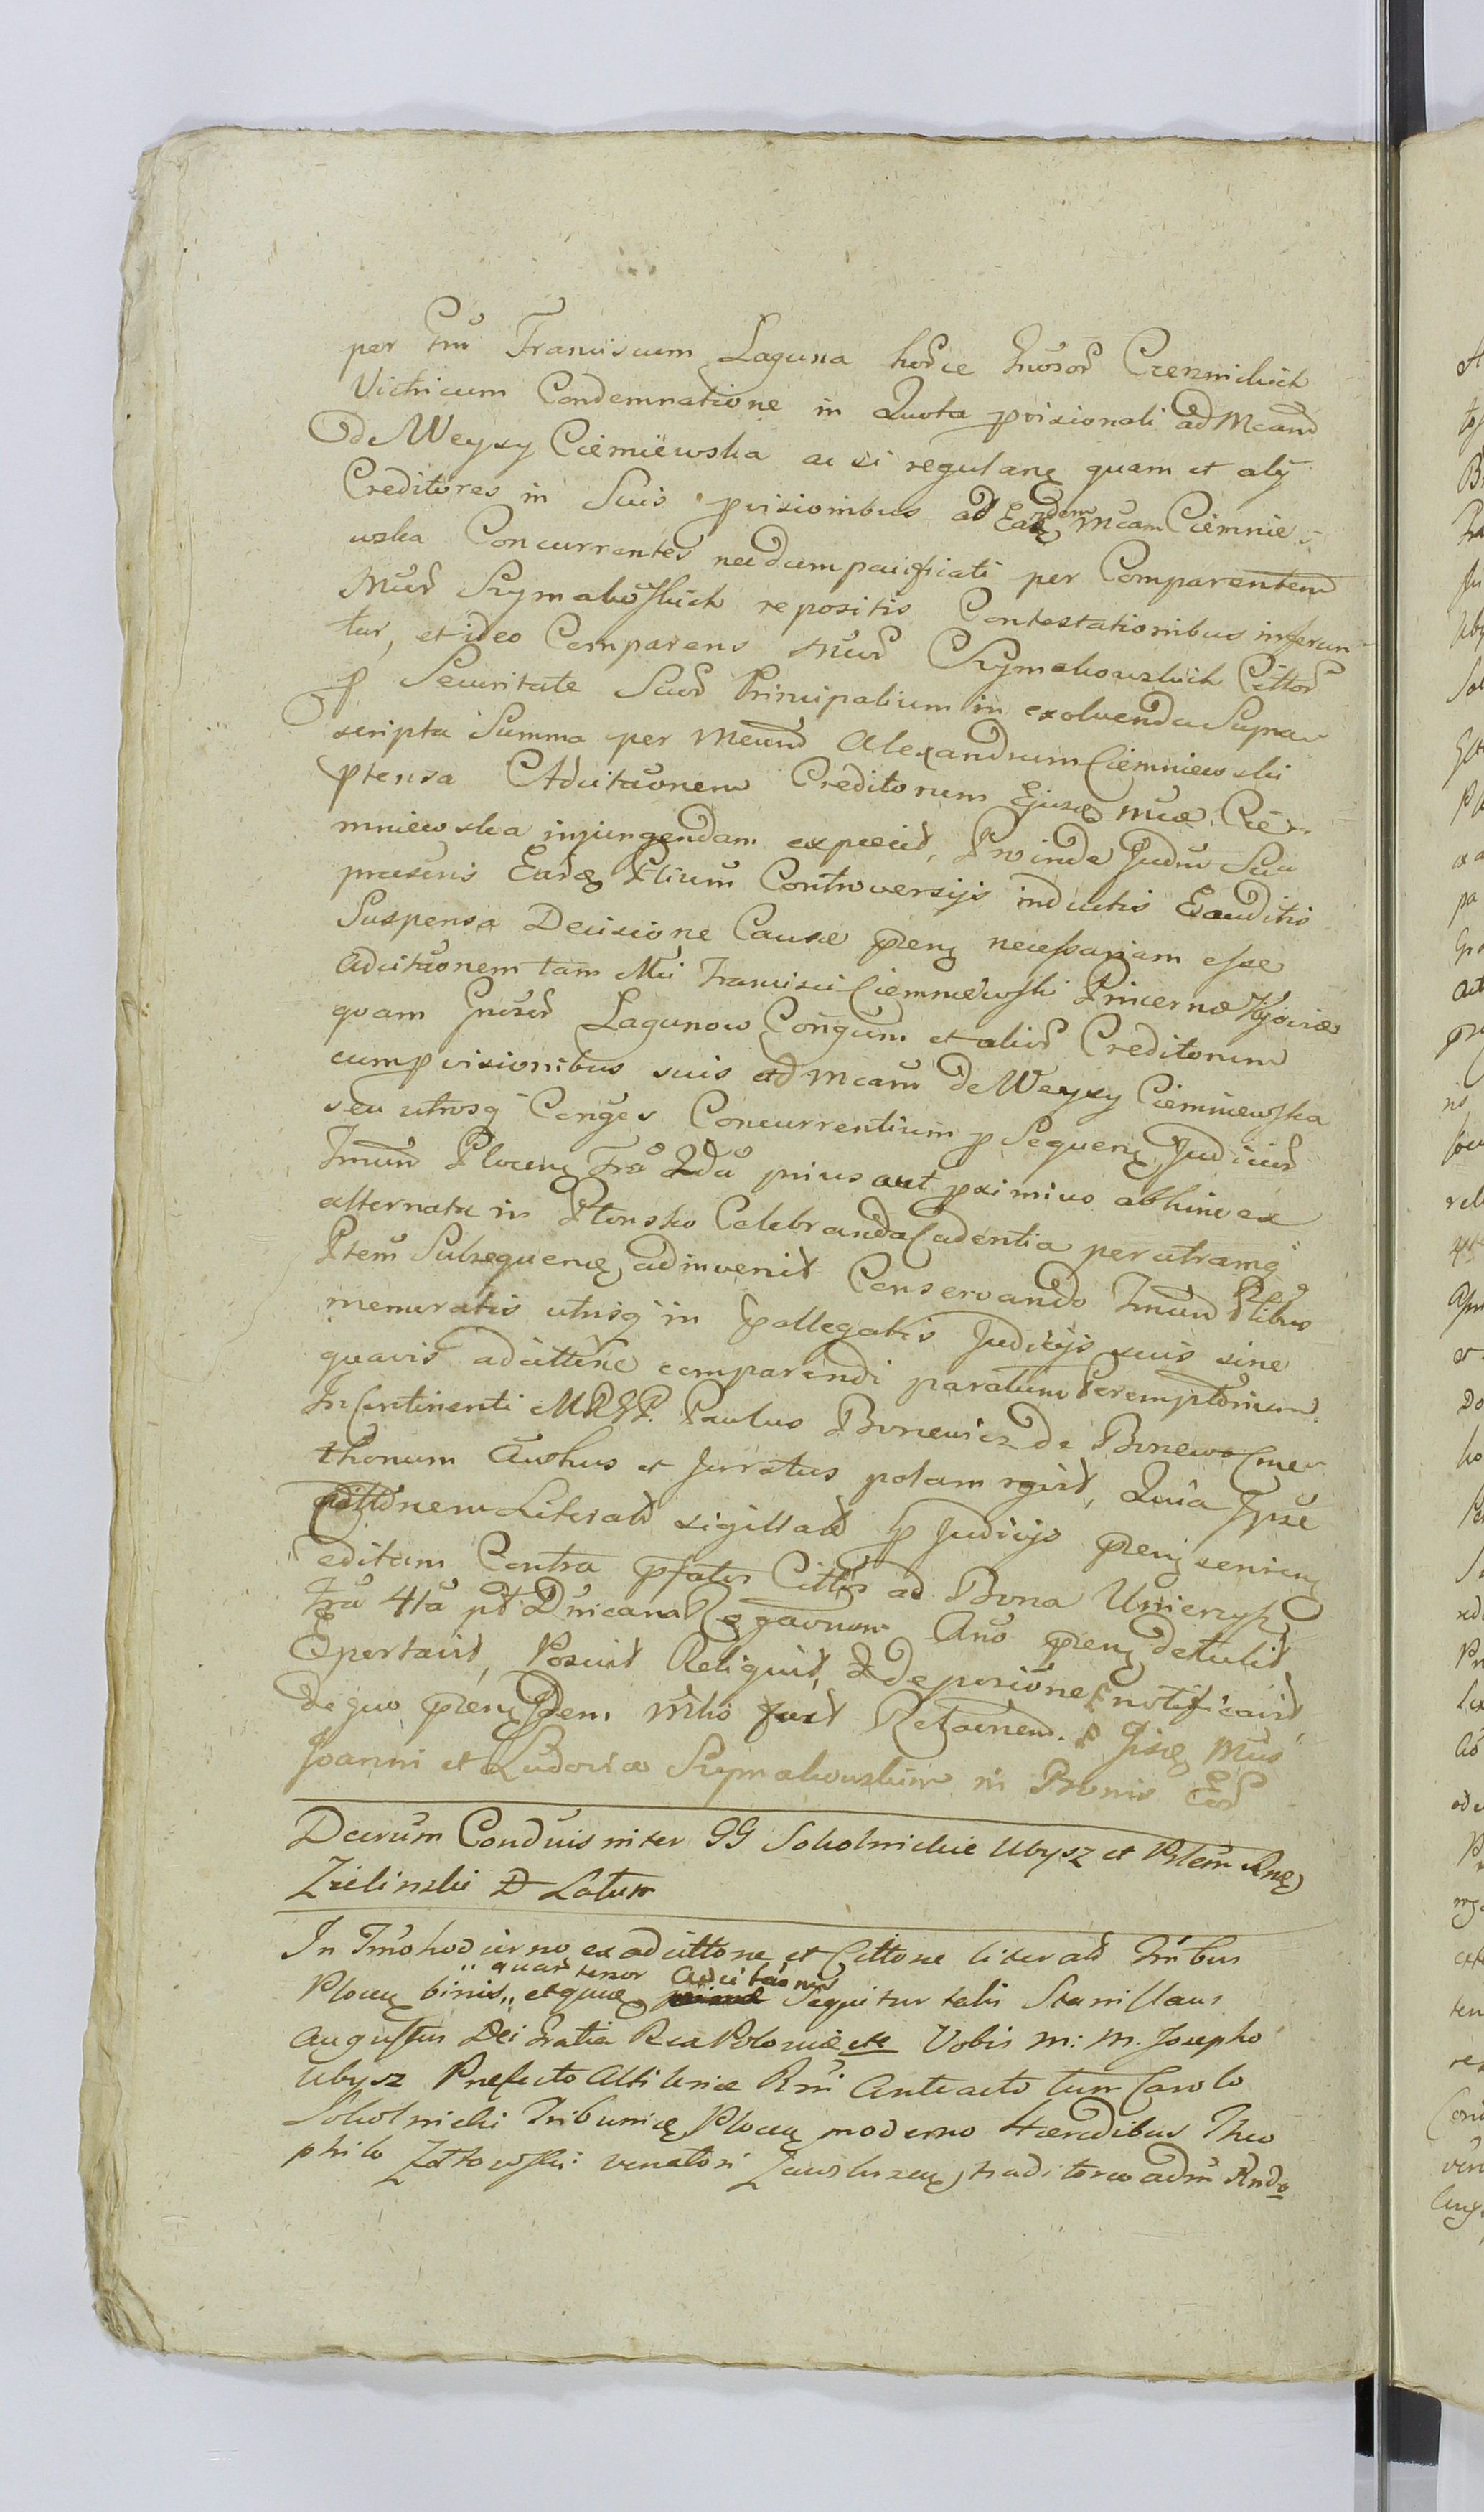 per Gnu Franciscum Laguna hosce Gnosos Czermickich
Victricum Condemnatione in Quota pvisionali ad Mcam
de Weysy Ciemiewska ac si regulanę quam et alij
Creditores in Suis pvisionibus ad Eandem Mcam Ciemnie-
wska Concurrentes nec dum pacificati per Comparentem
Mcor Szymakowskich repositis Contestationibus inferun-
tur, et ideo Comparens Mcor Szymakowskich Cittor
p Securitate Suor Principalium in exolvenda Supra
scripta Summa per Mcum Alexandrum Ciemniewski
ptensa Adcitaonem Creditorum Ejusd Mcae Cie-
mniewska injungendam expetit, Proinde Judm Sua
praesens Eard Ptium Controversijs inductis Exauditis
Suspensa Decisione Causae pteng necessariam esse
Adcitaonem tam Mci Francisci Ciemniewski Pincernae Kijoviae
quam Gnosor Lagunow Congum et alior Creditorum
cum pvisionibus suis ad Mcam de Weysy Ciemniewska
seu utrosq Conges Concurrentium p Sequeng Judicior
Trnum Ploceng Fra 2da prius aut pximius abhinc ex
alternata in Plonsko Celebranda Cadentia per utramq
Ptem Subsequeng adinvenit Conservando Trnum Ptibus
memoratis utrisq in pallegatis Judicijs suis sine
quavis adcittne comparendi paratum Peremptorium.
In Continenti MRGP. Paulus Bonewicz de Bonewo Cmer
thonum Custus et Juratus palam rgvit, Quia Ipse
Cittonem Literals sigillats p Judicijo pteng sereng
editam Contra pfatos Cittos ad Bona Unierzysz
Fra 4ta pt Dnicana Rogaonum Ano pteng detulit
Eportavit, Posuit Reliquit, & de posione notificavit
de quo pteng Ddem Mtho fuit Relaonem. Gisg Mcis
Joanni et Ludovicae Szymakowskim in Bonis Eor
Decrum Conduis inter GG Sokolnickie Ubysz et Ptem Rng
Zielinski & Latum
In Tmo hodierno ex adcittone et Cittone literats Trnibus
Ploceng binis,, et quae,, quar tenor Adcitaonis Sequitur talis Stanislaus
Augustus Dei Gratia Rex Poloniae etc Vobis M: M. Josepho
Ubysz Prefecto Attileriae Rni Anteacto tum Carolo
Sokolnicki Tribunicg Ploceng moderno Haeredibus Theo
philo Zottowski venatori Zawskrzeng, traditorio adm Rndo